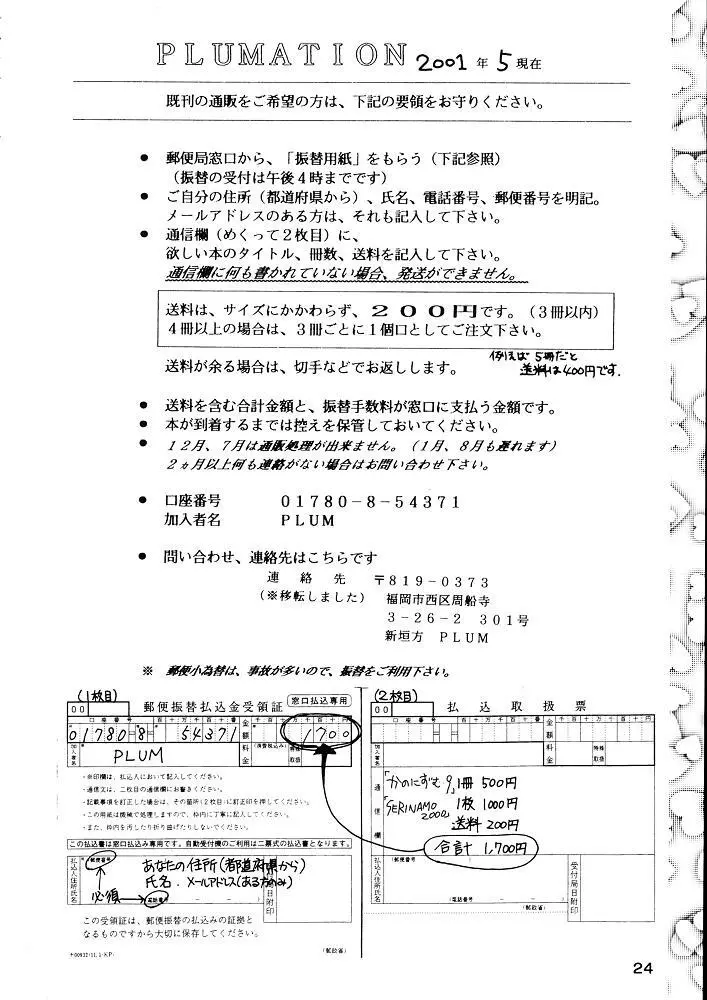 PLUMATION 2001年5現在
既刊の通販をご希望の方は、下記の要領をお守りください。
● 郵便局窓口から、「振替用紙」をもらう(下記参照)
(振替の受付は午後4時までです)
● ご自分の住所(都道府県から)、氏名、電話番号、郵便番号を明記。
メールアドレスのある方は、それも記入して下さい。
● 通信欄(めくって2枚目)に、
欲しい本のタイトル、冊数、送料を記入して下さい。
通信欄に何も書かれていない場合、発送ができません。
送料は、サイズにかかわらず、200円です。(3冊以内)
4冊以上の場合は、3冊ごとに1個口としてご注文下さい。
送料が余る場合は、切手などでお返しします。
例えば5冊だと
送料は400円です.
● 送料を含む合計金額と、振替手数料が窓口に支払う金額です。
● 本が到着するまでは控えを保管しておいてください。
● 12月、7月は通販処理が出来ません。(1月、8月も遅れます)
2ヵ月以上何も連絡がない場合はお問い合わせ下さい。
● 口座番号 01780-8-54371
加入者名 PLUM
● 問い合わせ、連絡先はこちらです
連絡先 〒819-0373
(※移転しました) 福岡市西区周船寺
3-26-2 301号
新垣方 PLUM
※ 郵便小為替は、事故が多いので、振替をご利用下さい。
(1枚目)
00 郵便振替払込金受領証 窓口払込専用
口座番号 百十万千百十番 金額 千百十万千百十円
01780-8-54371 1700
加入者名 PLUM 料金 (消費税込み) 特殊取扱
・※印欄は、払込人において記入してください。
・通信文は、二枚目の通信欄にお書きください。
・記載事項を訂正した場合は、その箇所(2枚目)に訂正印を押してください。
・この用紙は機械で処理しますので、枠内に丁寧に記入してください。
・また、枠内を汚したり折り曲げたりしないでください。
この払込書は窓口払込み専用です。自動受付機のご利用は二票式の払込書となります。
払込人住所氏名 郵便番号 あなたの住所(都道府県から)
氏名.メールアドレス(ある方のみ)
必須 電話番号
日附印
この受領証は、郵便振替の払込みの証拠と
なるものですから大切に保存してください。
(郵政省)
(2枚目)
00 払込取扱票
口座番号 百十万千百十番 金額 千百十万千百十円
加入者名 料金 特殊取扱
通信欄
「かのにずむ9」1冊 500円
「SERINAMO 2000」1枚 1000円
送料 200円
合計 1,700円
払込人住所氏名 (郵便番号)
(電話番号 - - )
受付局日附印
(郵政省)
24